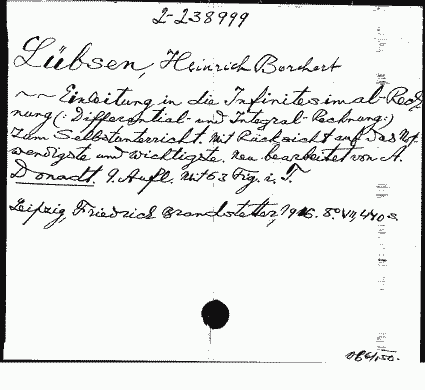 2-238999
Lübsen, Heinrich Borchert
~~ Einleitung in die Infinitesimal-Rech
nung (: Differential- und Integral-Rechnung:)
Zum Selbstunterricht. Mit Rücksicht auf das Not
wendigste und Wichtigste. Neu bearbeitet von A.
Donadt. 9. Aufl. Mit 63 Fig. i. T.
Leipzig, Friedrich Brandstetter, 8° VII, 440 S.